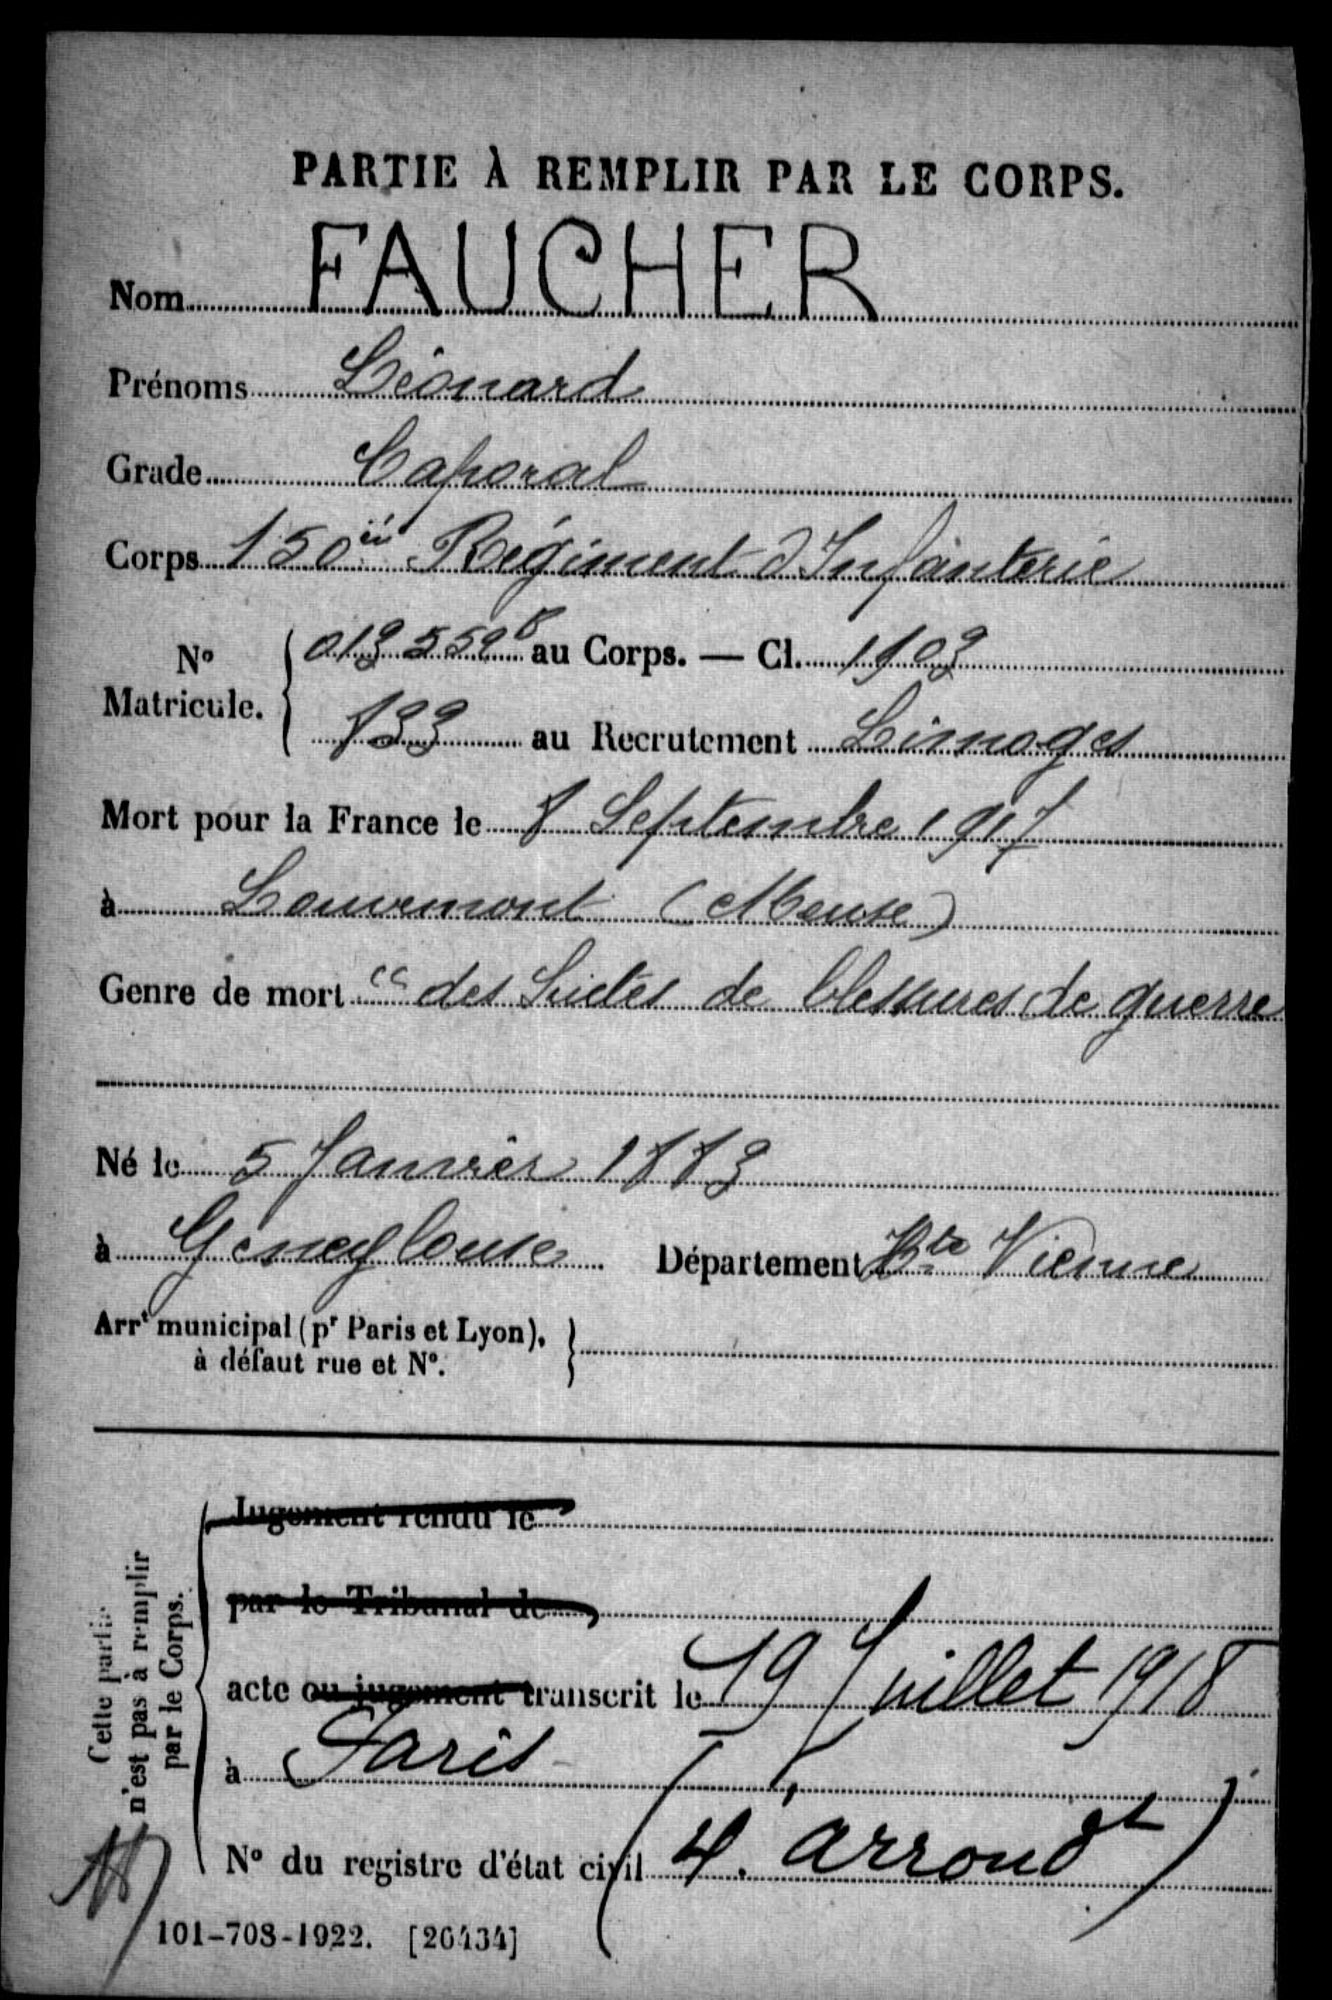 PARTIE À REMPLIR PAR LE CORPS.
Nom FAUCHER
Prénoms Léonard
Grade Caporal
Corps 150iè Régiment d'Infanterie
No Matricule. 013 559 B au Corps. — Cl. 1903
833 au Recrutement Limoges
Mort pour la France le 8 Septembre 1917
à Louvemont (Meuse)
Genre de mort des Suites de blessures de guerre
Né le 5 Janvier 1883
à Geneytouse Département Hte Vienne
Arrt municipal (pr Paris et Lyon),
à défaut rue et No.
Cette partie
n'est pas à remplir
par le Corps.
Jugement rendu le
par le Tribunal de
acte ou jugement transcrit le 19 Juillet 1918
à Paris
No du registre d'état civil (4. arrondt)
101-708-1922. [26434]